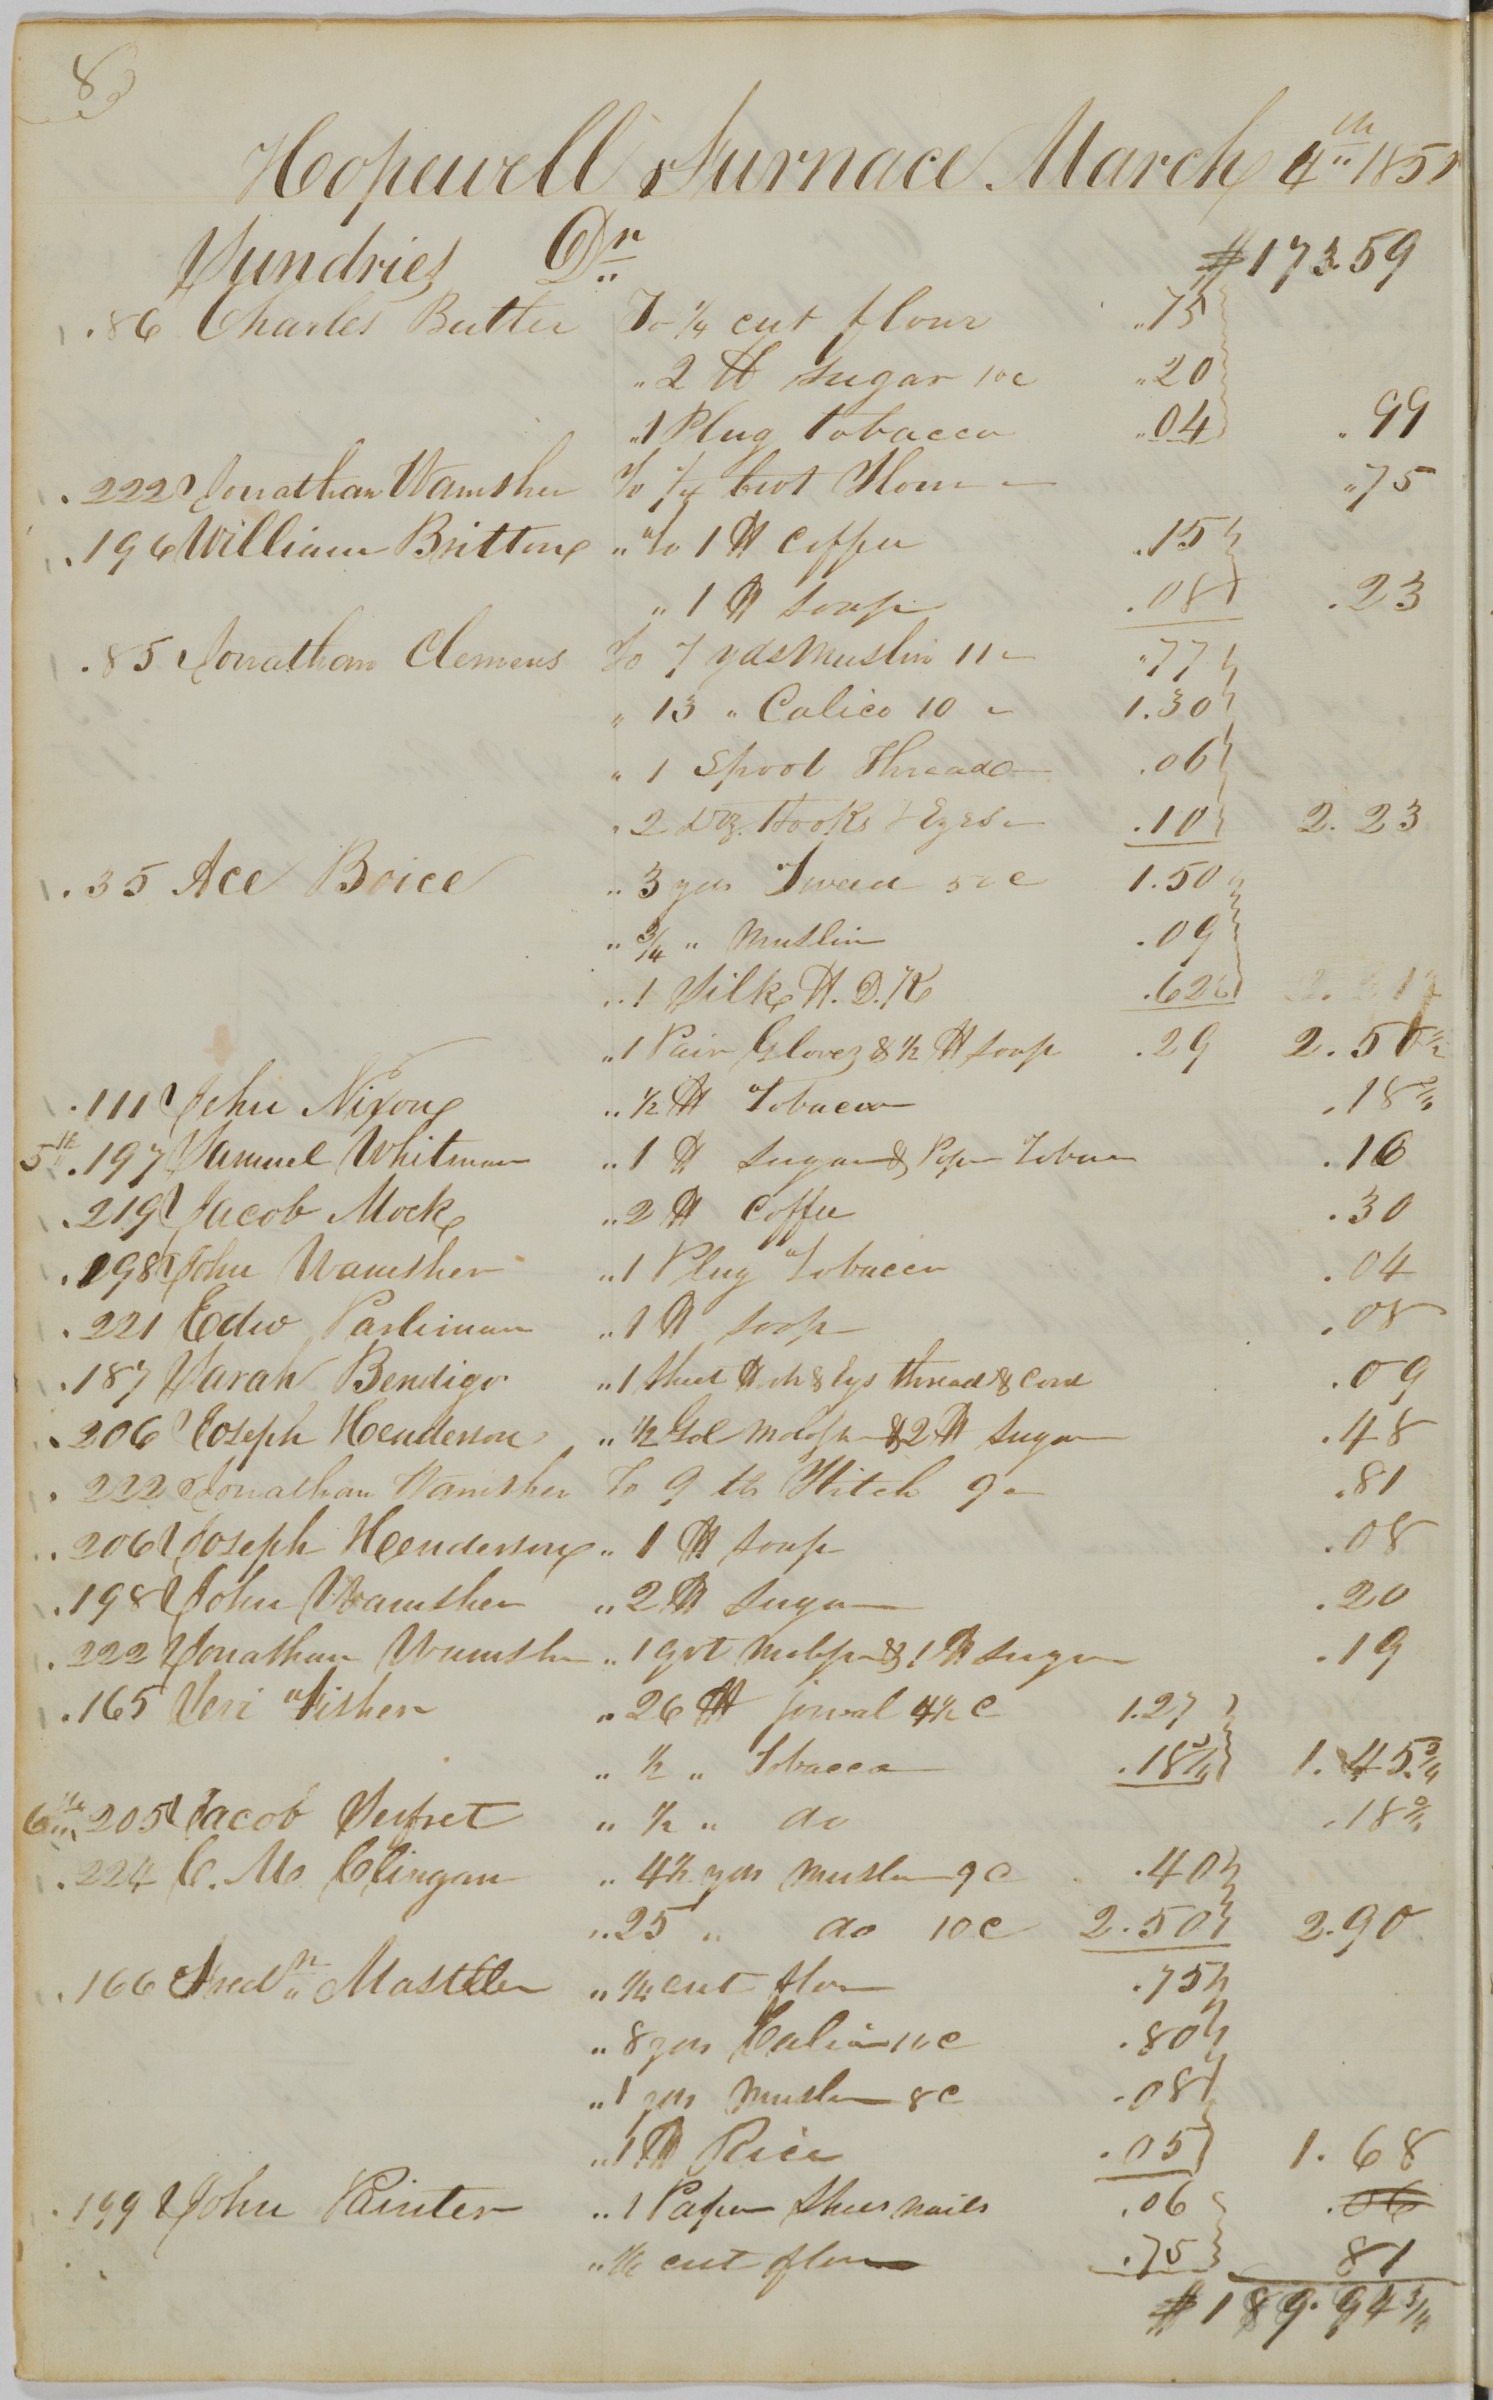 8
Hopewell Furnace March 4th 1851
Sundries Dr $173.59
.86 Charles Butler To 1/4 cwt flour .75
" 2 lb sugar 10c .20
" 1 Plug tobacco .04 .99
.222 Jonathan Wamsher To 1/4 cwt Flour .75
.196 William Britton " To 1 lb coffee .15
" 1 lb soap .08 .23
.85 Jonathan Clemens To 7 yds Muslin 11 .77
" 13 " Calico 10 1.30
" 1 Spool Thread .06
" 2 Doz. Hooks & Eyes .10 2.23
.35 Ace Boice " 3 yds Tweed 50c 1.50
" 3/4 " Muslin .09
" 1 Silk H.D.K .62½
" 1 Pair Gloves & ½ lb soap .29 2.50½
.111 John Nixon " ½ lb Tobacco .18¾
5th .197 Samuel Whitman " 1 lb sugar & Paper Tobacco .16
.219 Jacob Mock " 2 lb Coffee .30
.198 John Wamsher " 1 Plug Tobacco .04
.221 Edw Parliman " 1 lb soap .08
.187 Sarah Bendigo " 1 sheet Hook & Eys thread & cord .09
.206 Joseph Henderson " ½ Gal molasses & 2 lb sugar .48
.222 Jonathan Wamsher To 9 lb Flitch 9 .81
.206 Joseph Henderson " 1 lb soap .08
.198 John Wamsher " 2 lb sugar .20
.222 Jonathan Wamsher " 1 qrt molasses & 1 lb sugar .19
.165 Levi Fisher " 26 lb jowal 4½ C 1.27
" ½ " Tobacco .18¾ 1.45¾
6th .205 Jacob Seifret " ½ " do .18¾
.224 C. M. Clingan " 4½ yds muslin 9 C .40
" 25 " do 10 C 2.50 2.90
.166 Fredr Mastller " ¼ cwt flour .75
" 8 yds Calico 10 C .80
" 1 yds muslin 8 C .08
" 1 lb Rice .05 1.68
.199 John Painter " 1 Paper Shoe nails .06 .06
" ¼ cwt flour .75 81
$189.94¾